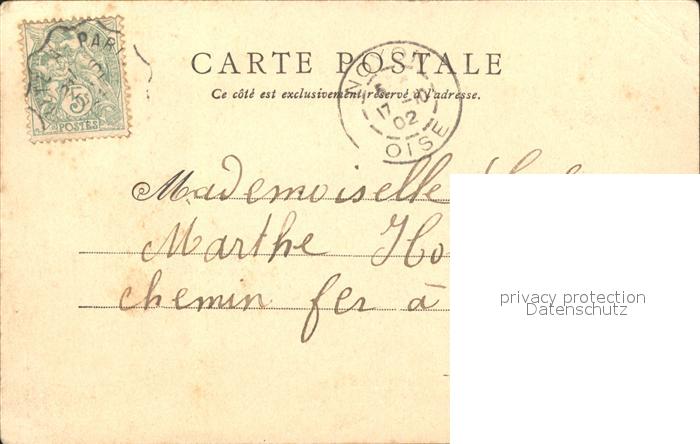 PARI
5
POSTES
CARTE POSTALE
Ce côté est exclusivement réservé à l'adresse.
NOYON
17
02
OISE
Mademoiselle
Marthe Ho
chemin fer à
privacy protection
Datenschutz